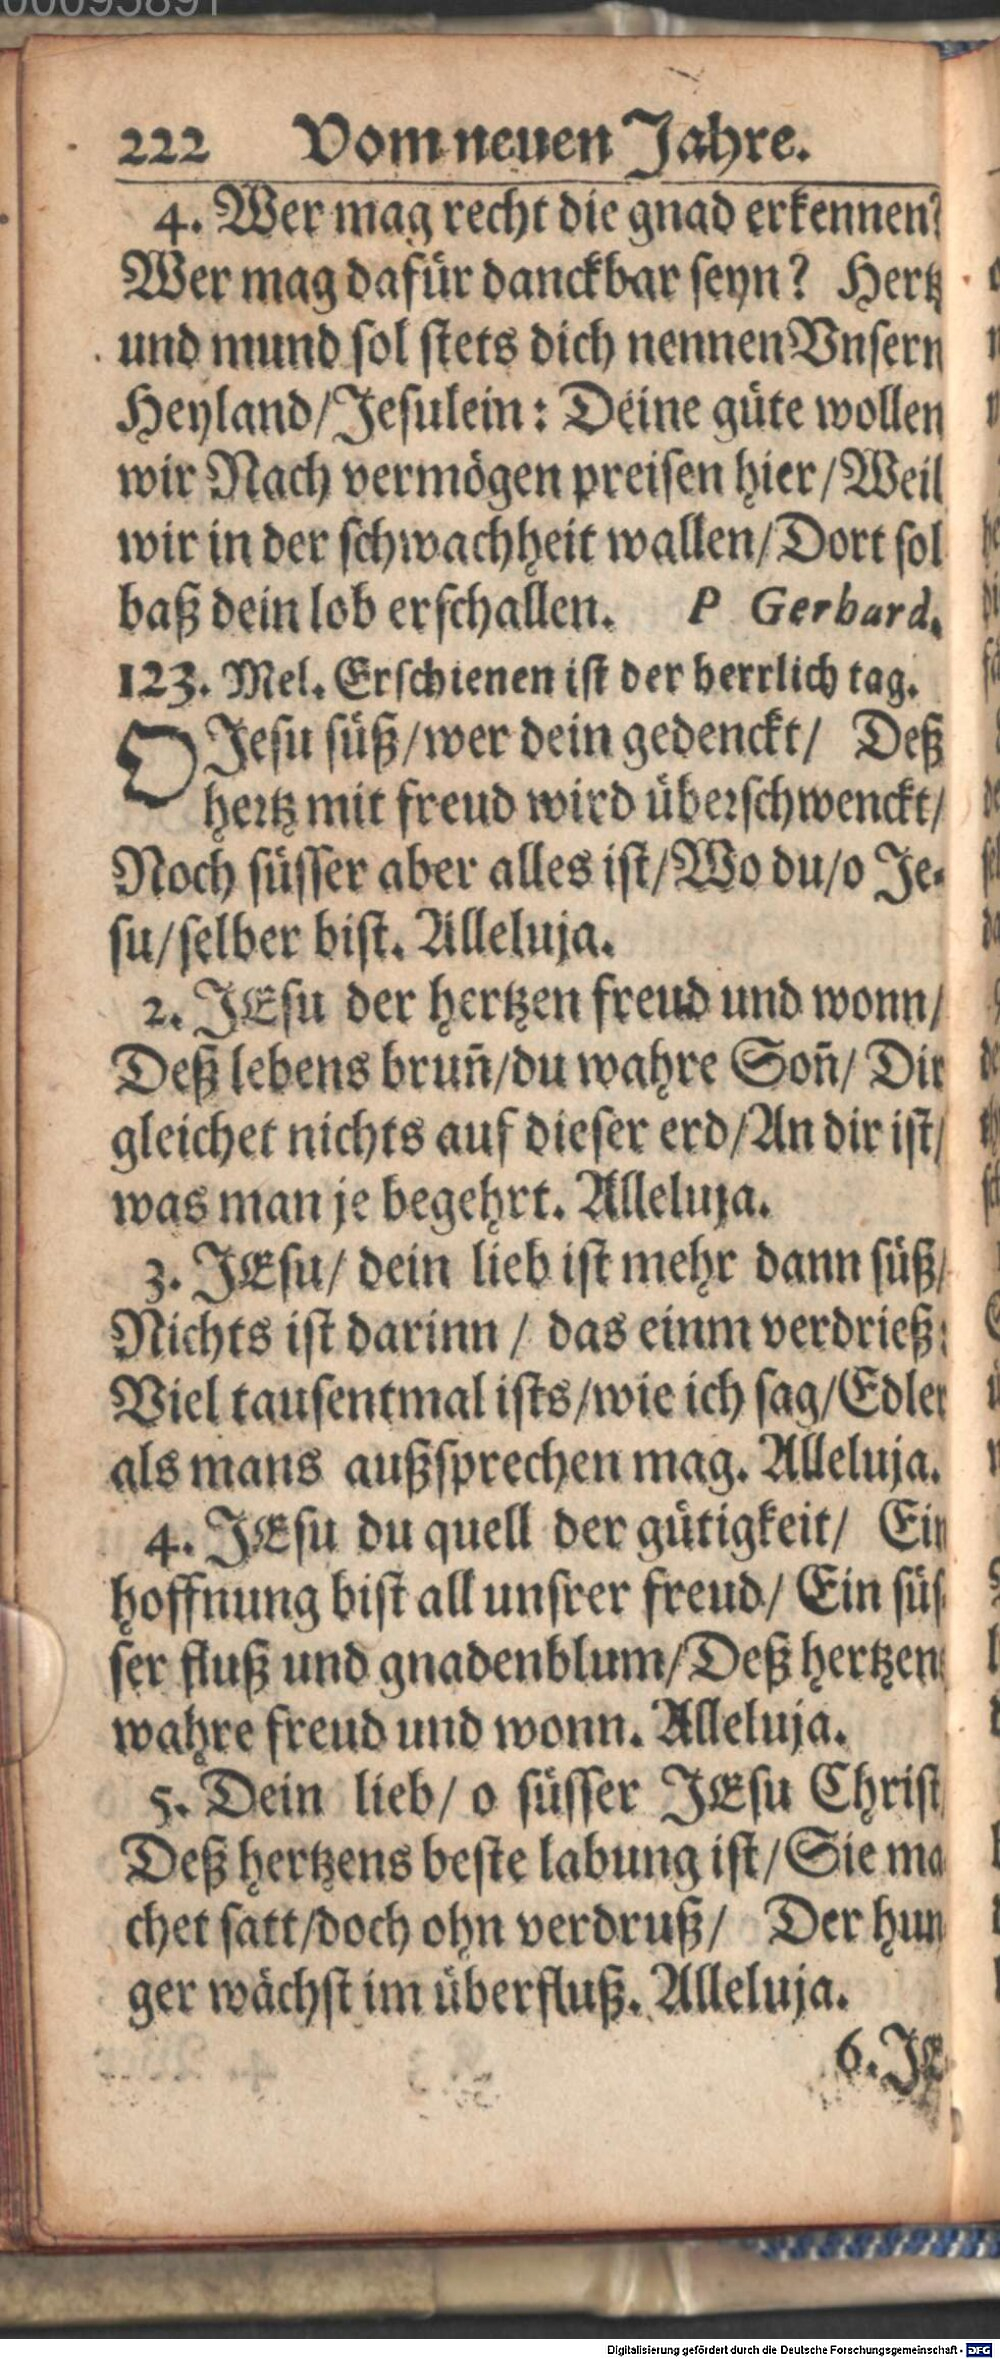 00095891
222 Vom neuen Jahre.
4. Wer mag recht die gnad erkennen?
Wer mag dafür danckbar seyn? Hertz
und mund sol stets dich nennen Vnsern
Heyland/Jesulein: Deine güte wollen
wir Nach vermögen preisen hier/Weil
wir in der schwachheit wallen/Dort sol
baß dein lob erschallen. P Gerhard.
123. Mel. Erschienen ist der herrlich tag.
O Jesu süß/wer dein gedenckt/ Deß
hertz mit freud wird überschwenckt/
Noch süsser aber alles ist/Wo du/o Je-
su/selber bist. Alleluja.
2. JEsu der hertzen freud und wonn/
Deß lebens brun̄/du wahre Son̄/ Dir
gleichet nichts auf dieser erd/An dir ist/
was man je begehrt. Alleluja.
3. JEsu/ dein lieb ist mehr dann süß/
Nichts ist darinn / das einm verdrieß:
Viel tausentmal ists/wie ich sag/Edler
als mans außsprechen mag. Alleluja.
4. JEsu du quell der gütigkeit/ Ein
hoffnung bist all unsrer freud/ Ein süs-
ser fluß und gnadenblum/Deß hertzens
wahre freud und wonn. Alleluja.
5. Dein lieb/ o süsser JEsu Christ
Deß hertzens beste labung ist/Sie ma
chet satt/doch ohn verdruß/ Der hun
ger wächst im überfluß. Alleluja.
6. JE
Digitalisierung gefördert durch die Deutsche Forschungsgemeinschaft - DFG